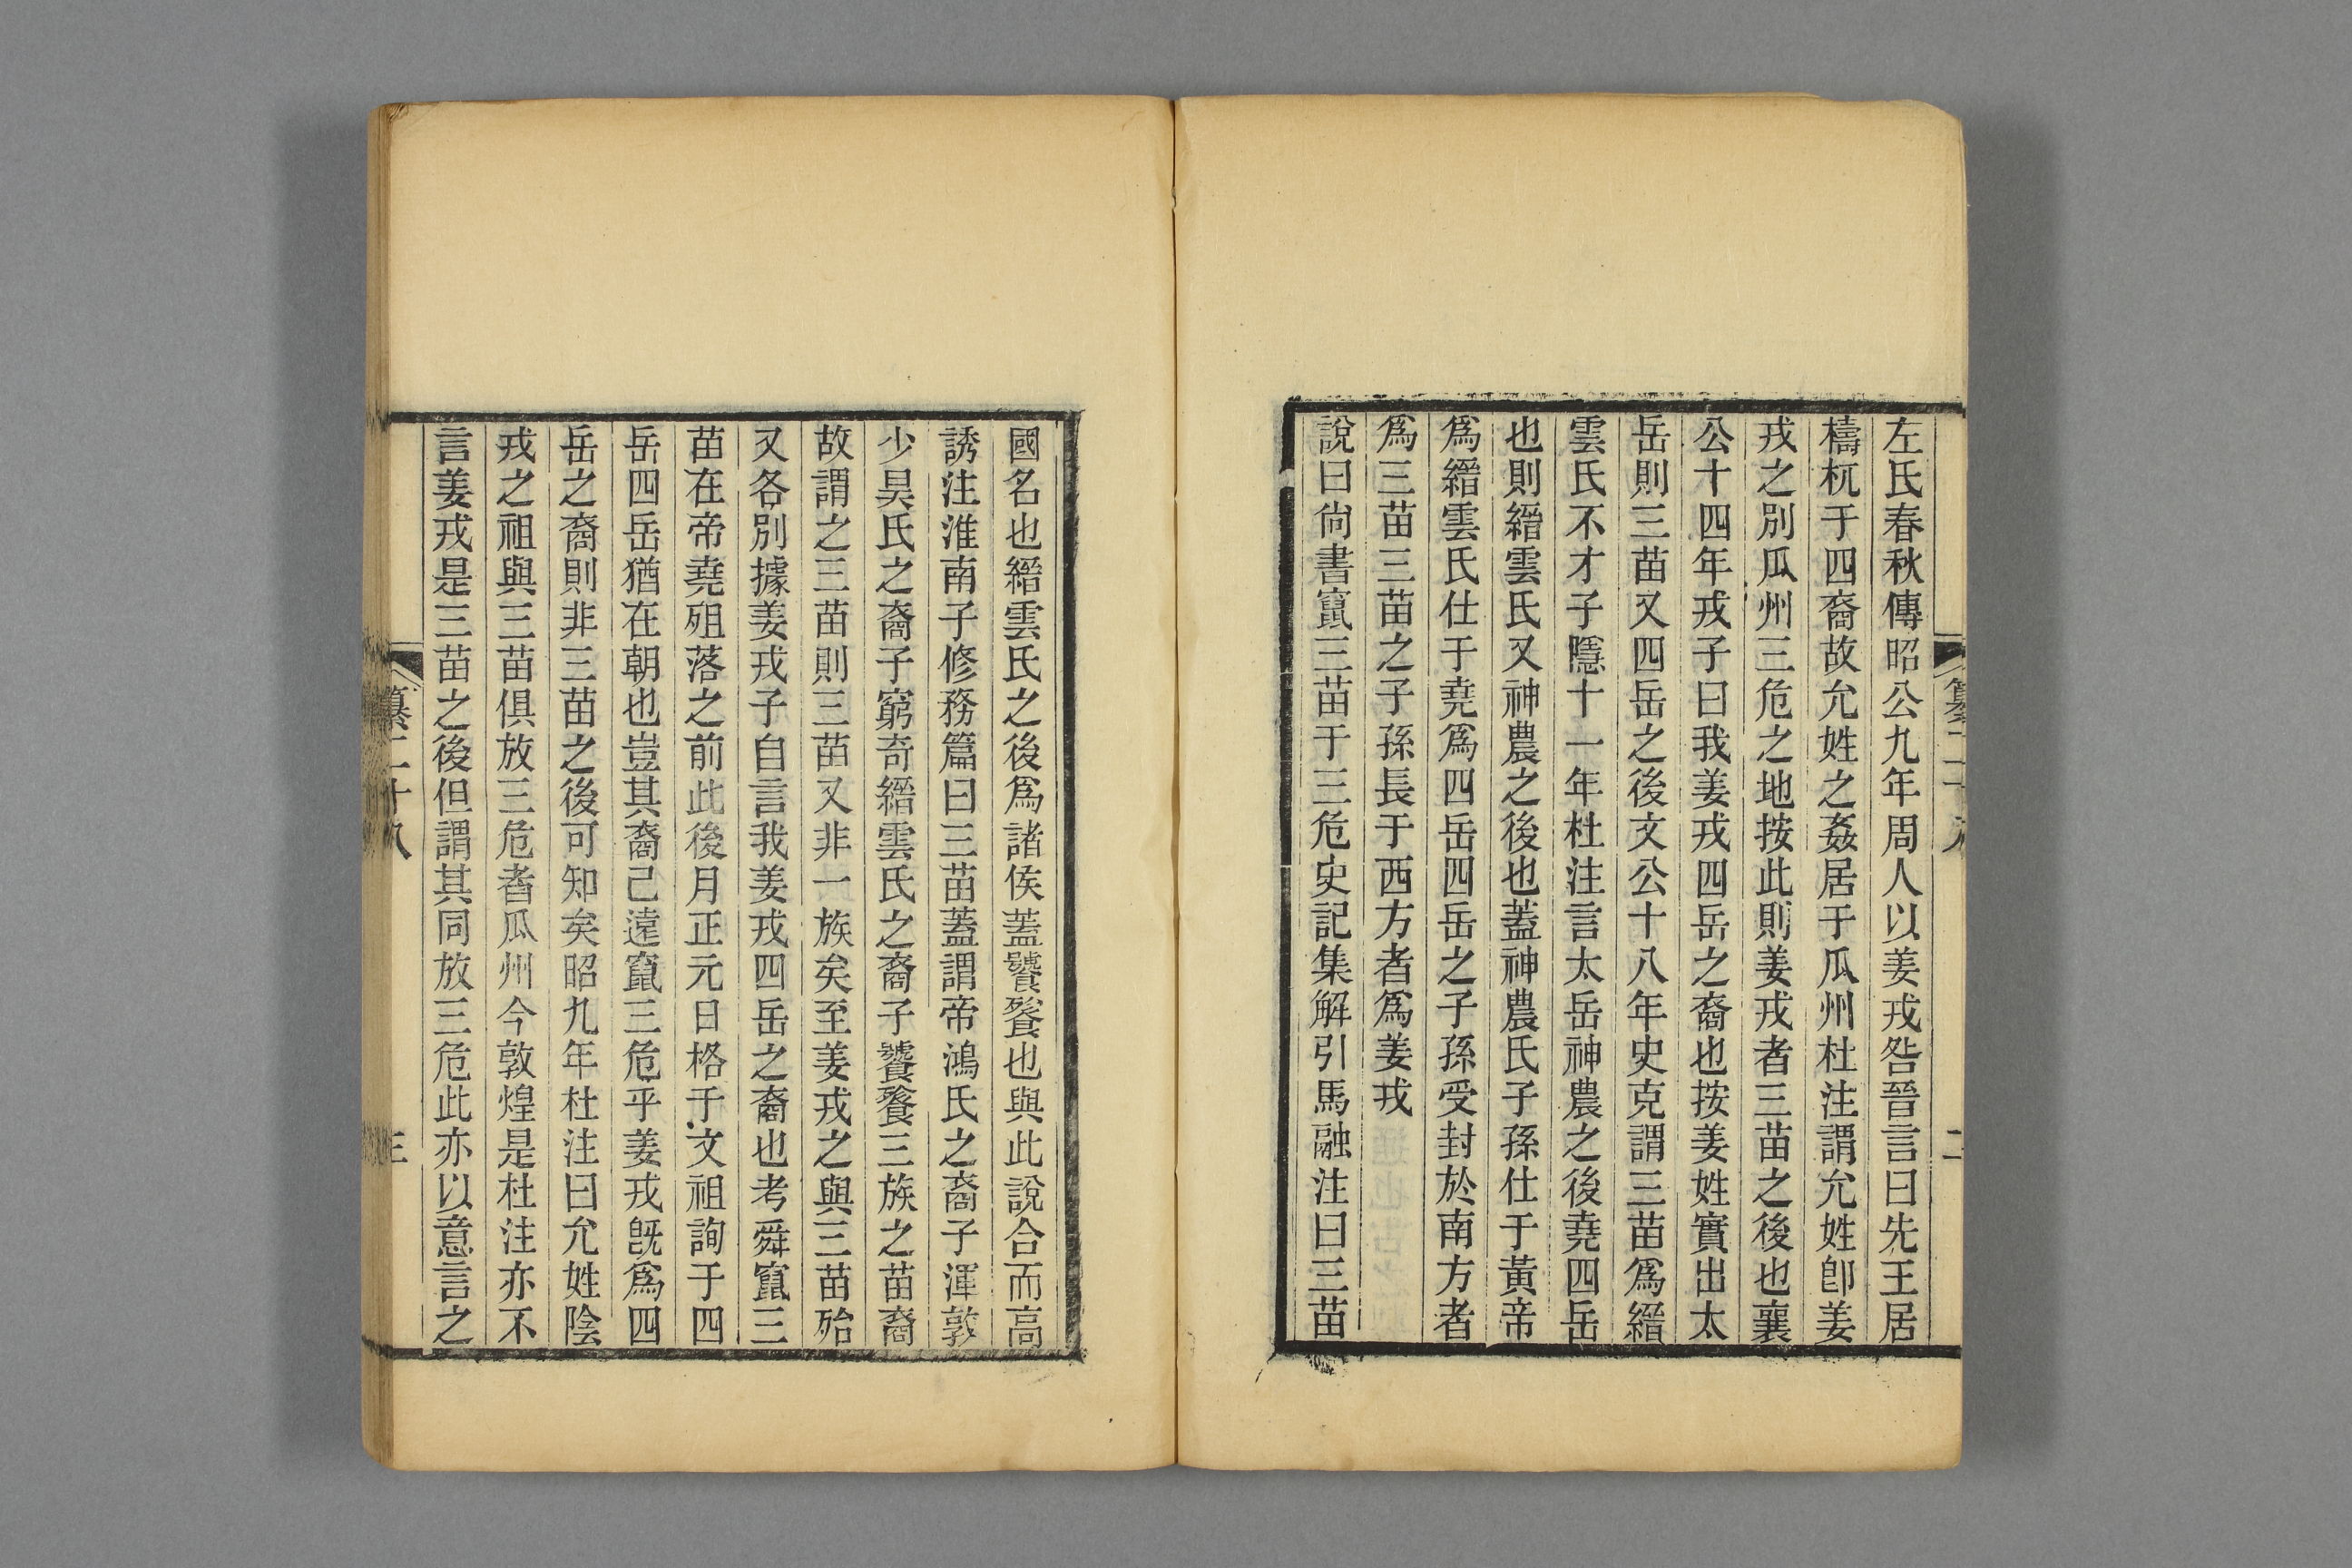 左氏春秋傳昭公九年周人以姜戎咎晉言曰先王居
檮杌于四裔故允姓之姦居于瓜州杜注謂允姓卽姜
戎之別瓜州三危之地按此則姜戎者三苗之後也襄
公十四年戎子曰我姜戎四岳之裔也按姜姓實出太
岳則三苗又四岳之後文公十八年史克謂三苗爲縉
雲氏不才子隱十一年杜注言太岳神農之後堯四岳
也則縉雲氏又神農之後也蓋神農氏子孫仕于黃帝
爲縉雲氏仕于堯爲四岳四岳之子孫受封於南方者
爲三苗三苗之子孫長于西方者爲姜戎
說曰尙書竄三苗于三危史記集解引馬融注曰三苗
國名也縉雲氏之後爲諸侯蓋饕餮也與此說合而高
誘注淮南子修務篇曰三苗蓋謂帝鴻氏之裔子渾敦
少昊氏之裔子窮奇縉雲氏之裔子饕餮三族之苗裔
故謂之三苗則三苗又非一族矣至姜戎之與三苗殆
又各別據姜戎子自言我姜戎四岳之裔也考舜竄三
苗在帝堯殂落之前此後月正元日格于文祖詢于四
岳四岳猶在朝也豈其裔己遠竄三危乎姜戎旣爲四
岳之裔則非三苗之後可知矣昭九年杜注曰允姓陰
戎之祖與三苗俱放三危者瓜州今敦煌是杜注亦不
言姜戎是三苗之後但謂其同放三危此亦以意言之
纂二十八
三